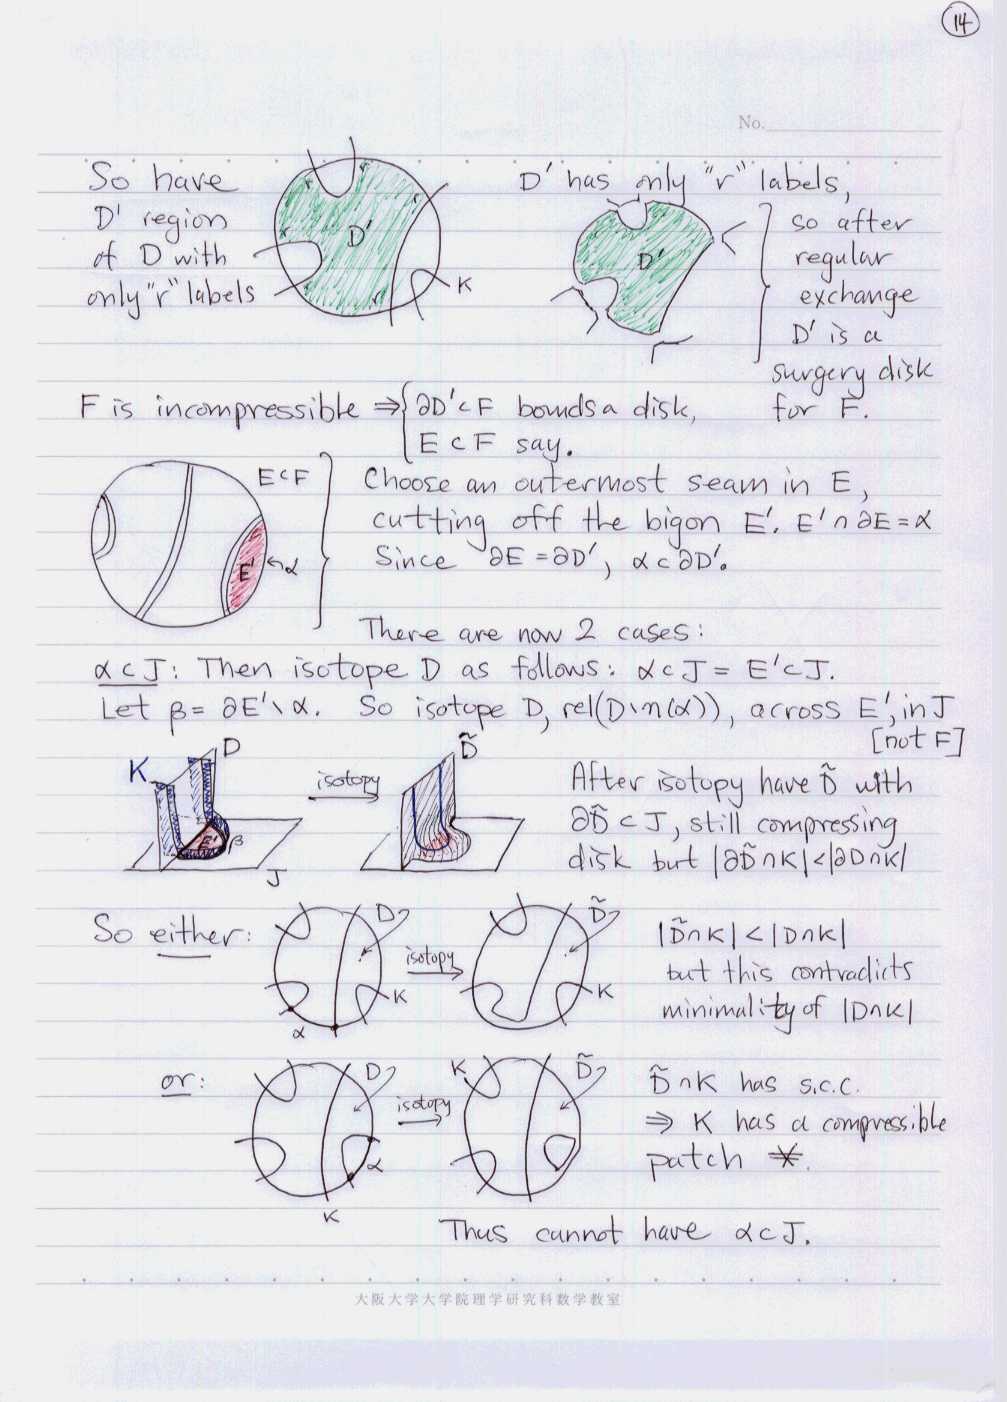 14
No.
So have
D' region
of D with
only "r" labels
r
r
r
r
r
D'
K
D' has only "r" labels,
D'
so after
regular
exchange
D' is a
surgery disk
for F.
F is incompressible ⇒ { ∂D' ⊂ F bounds a disk,
E ⊂ F say.
E ⊂ F
E'
α
Choose an outermost seam in E,
cutting off the bigon E'. E' ∩ ∂E = α
Since ∂E = ∂D', α ⊂ ∂D'.
There are now 2 cases:
α ⊂ J: Then isotope D as follows: α ⊂ J = E' ⊂ J.
Let β = ∂E' \ α. So isotope D, rel(D \ n(α)), across E', in J
[not F]
K
D
E'
β
J
isotopy
D̃
After isotopy have D̃ with
∂D̃ ⊂ J, still compressing
disk but |∂D̃ ∩ K| < |∂D ∩ K|
So either:
D
K
α
isotopy
D̃
K
|D̃ ∩ K| < |D ∩ K|
but this contradicts
minimality of |D ∩ K|
or:
D
α
K
isotopy
K
D̃
D̃ ∩ K has s.c.c.
⇒ K has a compressible
patch ※.
Thus cannot have α ⊂ J.
大阪大学大学院理学研究科数学教室